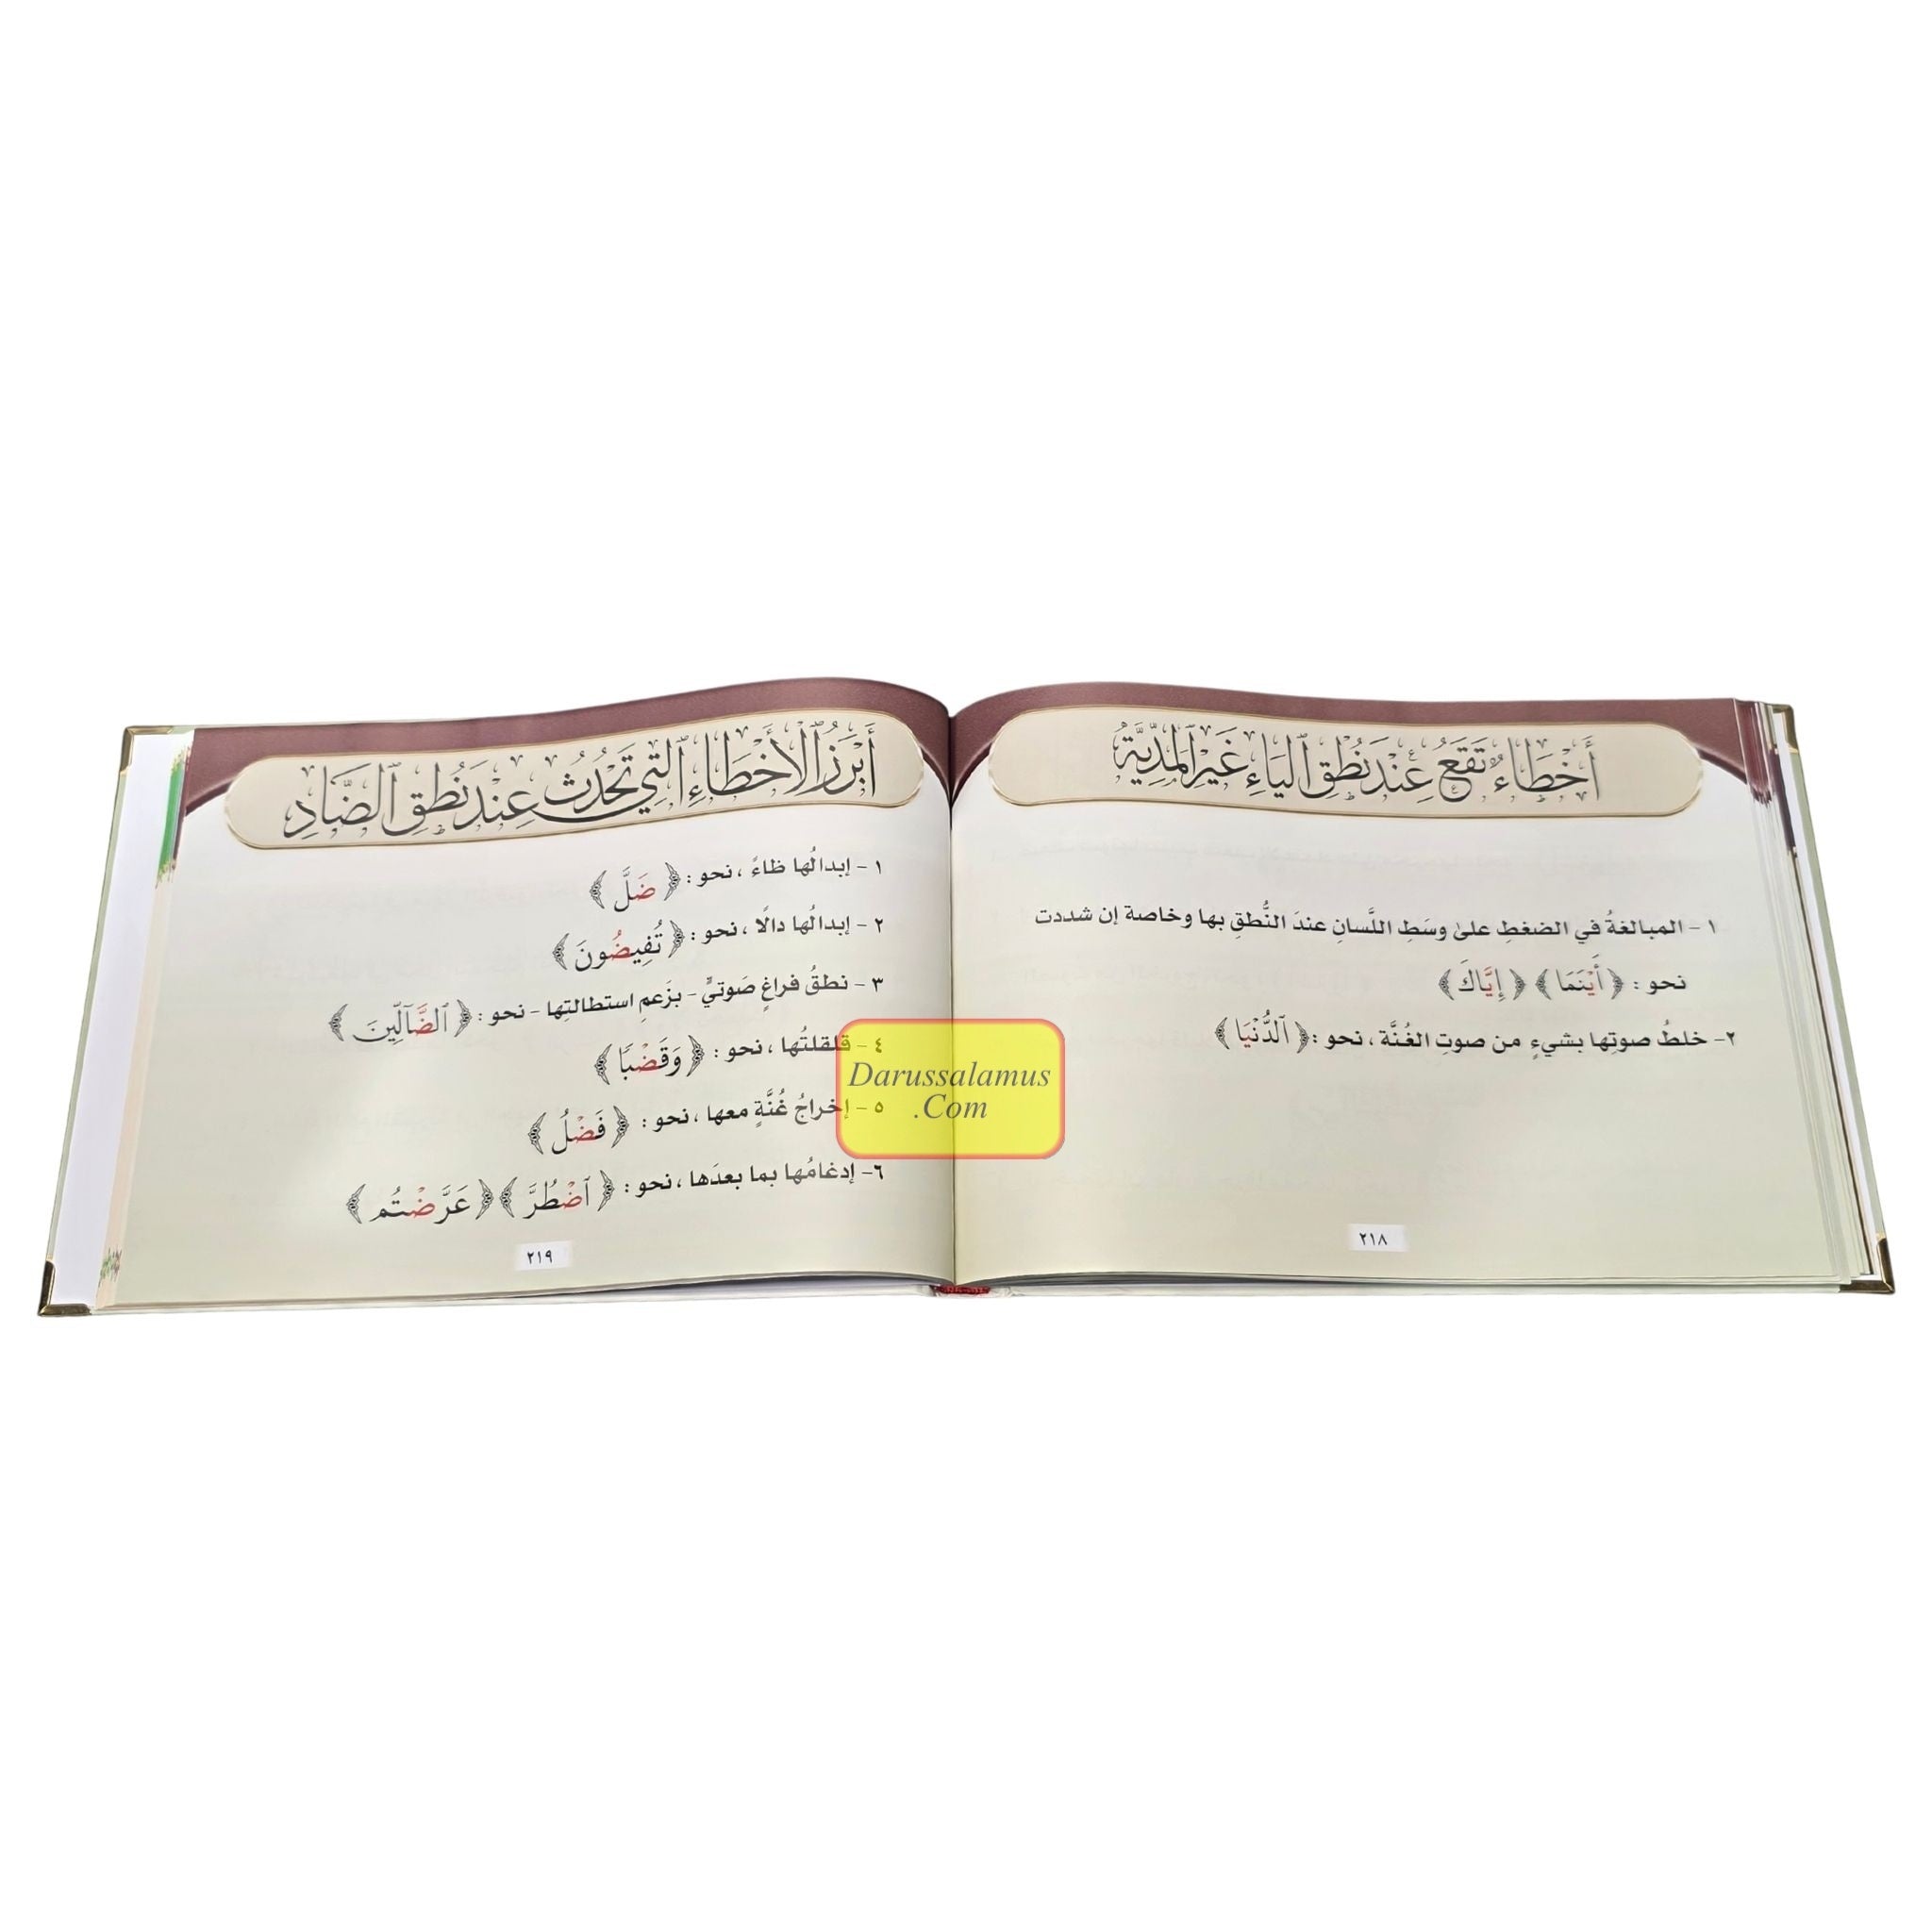 أَخْطَاءٌ تَقَعُ عِنْدَ نُطْقِ ٱليَاءِ غَيْرِ ٱلمَدِّيَّةِ
١ - المبالغةُ في الضغطِ علىٰ وسَطِ اللسانِ عندَ النُّطقِ بها وخاصة إن شددت
نحو : ﴿أَيْنَمَا﴾ ﴿إِيَّاكَ﴾
٢- خلطُ صوتِها بشيءٍ من صوتِ الغُنَّة ، نحو : ﴿ٱلدُّنْيَا﴾
٢١٨
أَبْرَزُ ٱلْأَخْطَاءِ ٱلَّتِي تَحْدُثُ عِنْدَ نُطْقِ ٱلضَّادِ
١ - إبدالُها ظاءً ، نحو : ﴿ضَلَّ﴾
٢ - إبدالُها دالًا ، نحو : ﴿تُفِيضُونَ﴾
٣ - نطقُ فراغٍ صَوتيٍّ - بزَعمِ استطالتِها - نحو : ﴿ٱلضَّآلِّينَ﴾
٤ - قلقلتُها ، نحو : ﴿وَقَضْبًا﴾
٥ - إخراجُ غُنَّةٍ معها ، نحو : ﴿فَضْلُ﴾
٦- إدغامُها بما بعدَها ، نحو : ﴿ٱضْطُرَّ﴾ ﴿عَرَّضْتُم﴾
٢١٩
Darussalamus
.Com